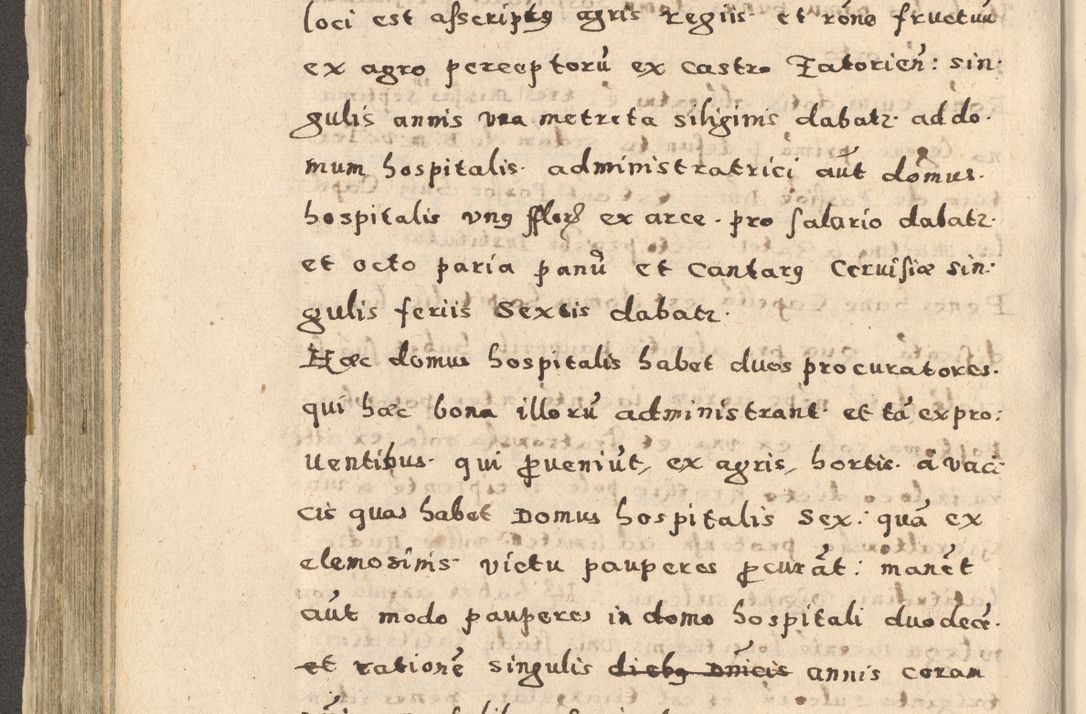 loci est asscriptus agris regiis· et rone fructuũ
ex agro perceptorũ ex castro Zatorień: sin·
gulis annis una metreta siliginis dabatr· ad do·
mum hospitalis· administratrici aũt domus·
hospitalis unus ex arce · pro salario dabatr·
et octo paria panũ et cantarus Cervisiæ sin·
gulis feriis Sextis dabatr·
Hæc domus hospitalis habet duos procuratores·
qui hæc bona illorũ administrant· et tã ex pro:
uentibus· qui ꝓueniũt, ex agris, hortis· a vac
cis quas habet Domus hospitalis Sex: quã ex
elemosinis· victu pauperes ꝓcurãt: manẽt
aũt modo pauperes in domo hospitali duodecẽ·
et rationẽ singulis diebus Dnicis annis coram